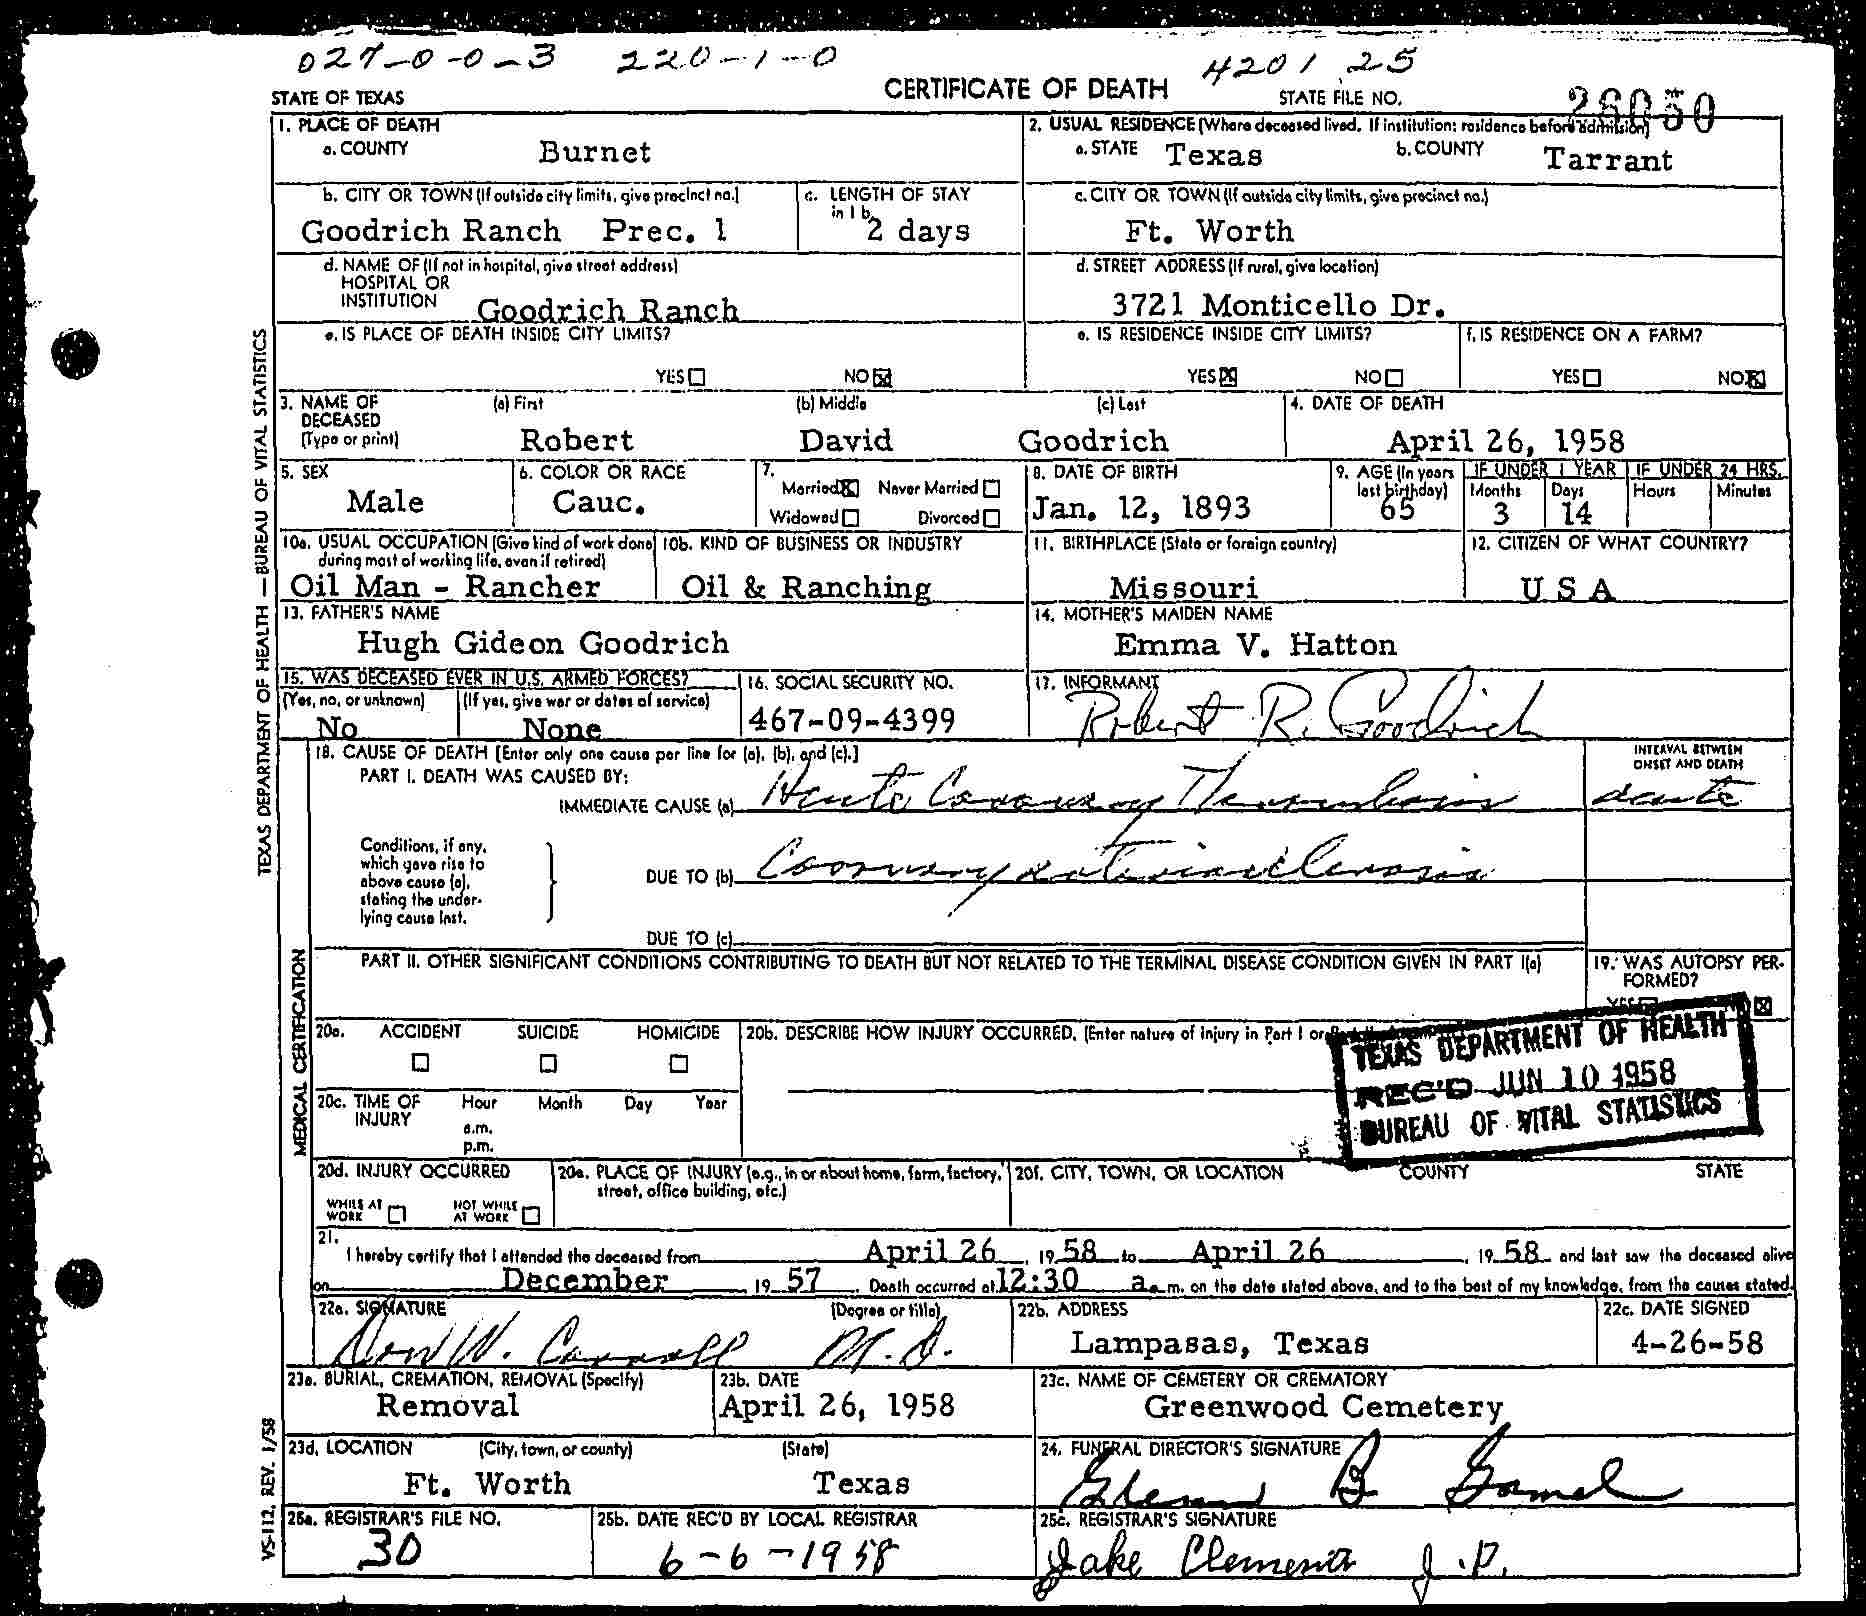 027-0-0-3 220-1-0 4201 25
STATE OF TEXAS CERTIFICATE OF DEATH STATE FILE NO. 26050
1. PLACE OF DEATH
a. COUNTY Burnet
2. USUAL RESIDENCE (Where deceased lived. If institution: residence before admission)
a. STATE Texas b. COUNTY Tarrant
b. CITY OR TOWN (If outside city limits, give precinct no.)
Goodrich Ranch Prec. 1
c. LENGTH OF STAY
in 1 b
2 days
c. CITY OR TOWN (If outside city limits, give precinct no.)
Ft. Worth
d. NAME OF (If not in hospital, give street address)
HOSPITAL OR
INSTITUTION Goodrich Ranch
d. STREET ADDRESS (If rural, give location)
3721 Monticello Dr.
e. IS PLACE OF DEATH INSIDE CITY LIMITS?
YES NO
e. IS RESIDENCE INSIDE CITY LIMITS?
YES NO
f. IS RESIDENCE ON A FARM?
YES NO
3. NAME OF
DECEASED
(Type or print)
(a) First (b) Middle (c) Last
Robert David Goodrich
4. DATE OF DEATH
April 26, 1958
5. SEX
Male
6. COLOR OR RACE
Cauc.
7.
Married Never Married
Widowed Divorced
8. DATE OF BIRTH
Jan. 12, 1893
9. AGE (In years
last birthday)
65
IF UNDER 1 YEAR IF UNDER 24 HRS.
Months Days Hours Minutes
3 14
10a. USUAL OCCUPATION (Give kind of work done
during most of working life, even if retired)
Oil Man - Rancher
10b. KIND OF BUSINESS OR INDUSTRY
Oil & Ranching
11. BIRTHPLACE (State or foreign country)
Missouri
12. CITIZEN OF WHAT COUNTRY?
U S A
13. FATHER'S NAME
Hugh Gideon Goodrich
14. MOTHER'S MAIDEN NAME
Emma V. Hatton
15. WAS DECEASED EVER IN U.S. ARMED FORCES?
(Yes, no, or unknown) (If yes, give war or dates of service)
No None
16. SOCIAL SECURITY NO.
467-09-4399
17. INFORMANT
Robert R. Goodrich
18. CAUSE OF DEATH [Enter only one cause per line for (a), (b), and (c).]
PART I. DEATH WAS CAUSED BY:
INTERVAL BETWEEN
ONSET AND DEATH
IMMEDIATE CAUSE (a) Acute Coronary Thrombosis acute
Conditions, if any,
which gave rise to
above cause (a),
stating the under-
lying cause last.
DUE TO (b) Coronary arteriosclerosis
DUE TO (c)
PART II. OTHER SIGNIFICANT CONDITIONS CONTRIBUTING TO DEATH BUT NOT RELATED TO THE TERMINAL DISEASE CONDITION GIVEN IN PART I(a)
19. WAS AUTOPSY PER-
FORMED?
YES
20a. ACCIDENT SUICIDE HOMICIDE
20b. DESCRIBE HOW INJURY OCCURRED. (Enter nature of injury in Part I or
TEXAS DEPARTMENT OF HEALTH
REC'D JUN 10 1958
BUREAU OF VITAL STATISTICS
20c. TIME OF
INJURY
Hour Month Day Year
a.m.
p.m.
20d. INJURY OCCURRED
WHILE AT
WORK
NOT WHILE
AT WORK
20e. PLACE OF INJURY (e.g., in or about home, farm, factory,
street, office building, etc.)
20f. CITY, TOWN, OR LOCATION COUNTY STATE
21.
I hereby certify that I attended the deceased from April 26, 19 58 to April 26, 19 58 and last saw the deceased alive
on December, 19 57. Death occurred at 12:30 a.m. on the date stated above, and to the best of my knowledge, from the causes stated.
22a. SIGNATURE (Degree or title)
Don W. Carroll M.D.
22b. ADDRESS
Lampasas, Texas
22c. DATE SIGNED
4-26-58
23a. BURIAL, CREMATION, REMOVAL (Specify)
Removal
23b. DATE
April 26, 1958
23c. NAME OF CEMETERY OR CREMATORY
Greenwood Cemetery
23d. LOCATION (City, town, or county) (State)
Ft. Worth Texas
24. FUNERAL DIRECTOR'S SIGNATURE
Glenn B Gamel
25a. REGISTRAR'S FILE NO.
30
25b. DATE REC'D BY LOCAL REGISTRAR
6-6-1958
25c. REGISTRAR'S SIGNATURE
Jake Clements J.P.
TEXAS DEPARTMENT OF HEALTH — BUREAU OF VITAL STATISTICS
MEDICAL CERTIFICATION
VS-112, REV. 1/58